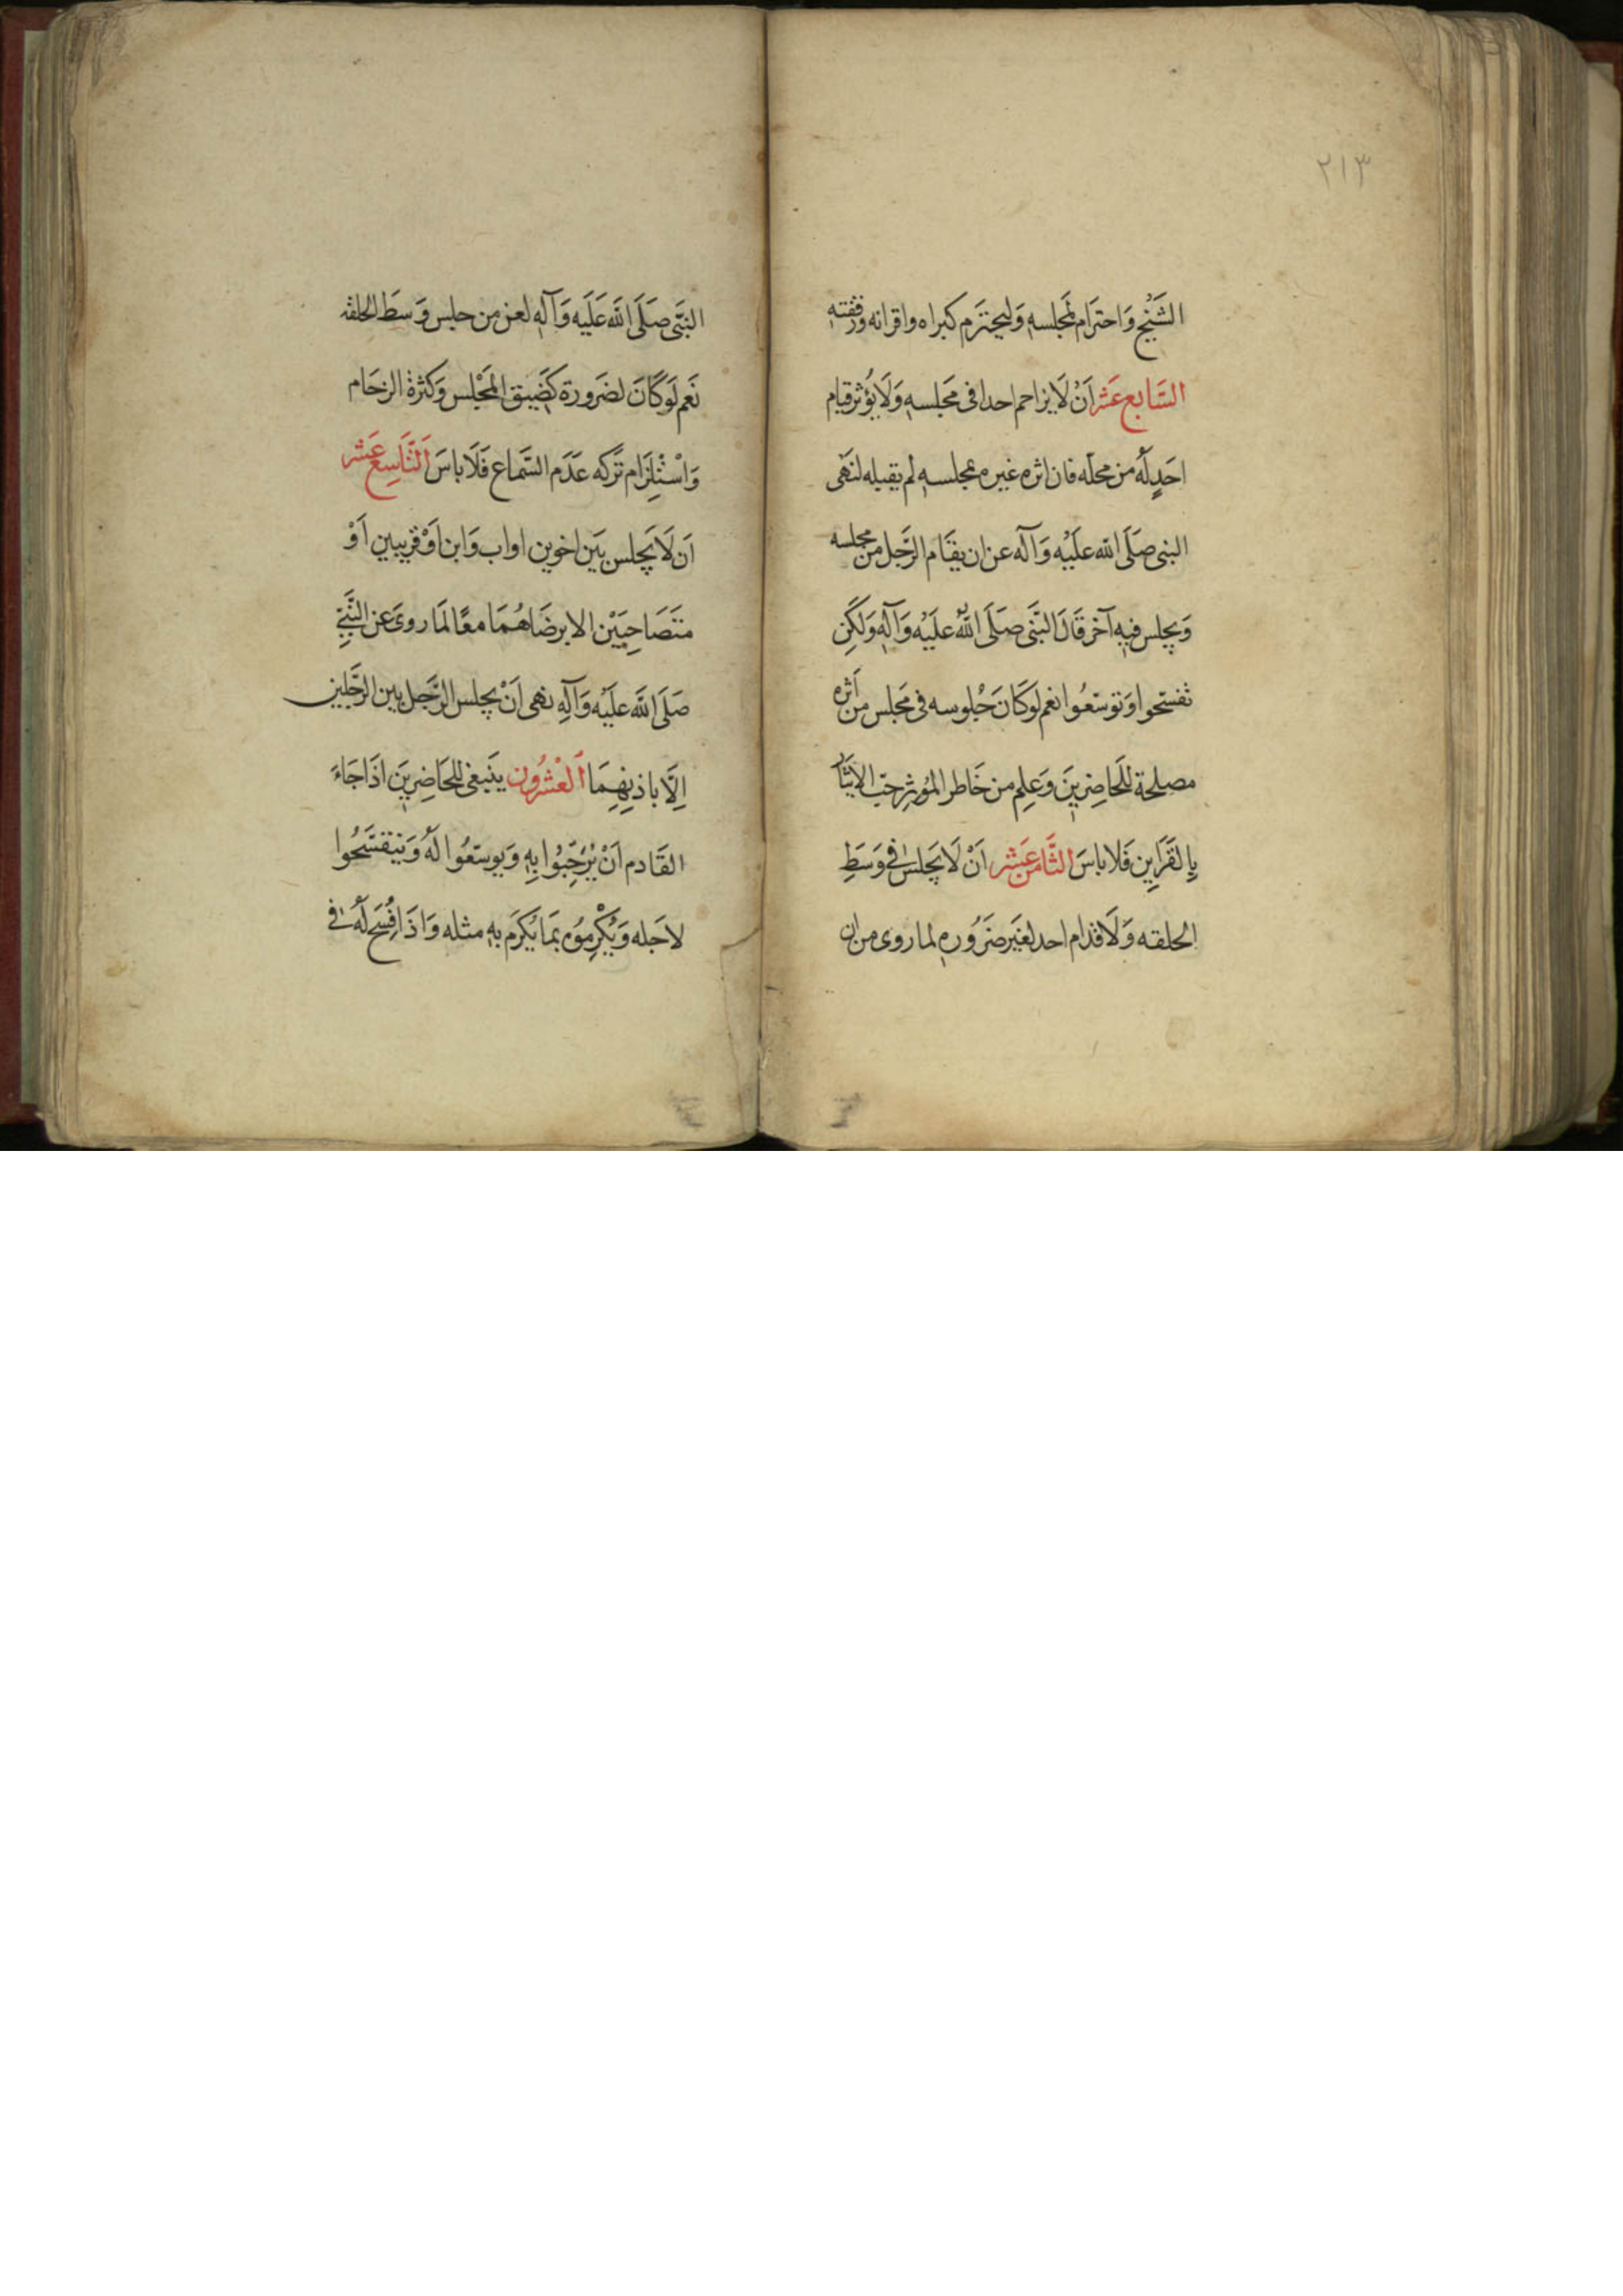 ٢١٣
الشَّيْخِ وَاحتَرَام لمَجلسهِ وَليحترَم كبراه واقرانه ورفقته
السَّابع عَشر اَنْ لَا يزاحم احدا فى مَجلسهِ وَلَا يؤثر قيام
احَدٍ لَهُ من محلّه فان اثره غيره بمجلسهِ لم يقبله لنَهَى
النبى صَلَى الله عَليْه وَآله عن ان يقَام الرّجل من مجلسه
وَيجلس فيهِ آخر قَالَ النَّبى صَلَى اللهُ عَليْه وَآلهِ وَلَكِن
تفسّحوا وَتوسّعُوا نعم لوَ كَانَ جُلوسه فى مَجلس من اَثره
مصلحة للحَاضِرينَ وَعلم من خَاطر المؤثِر حبّ الايثَار
بِالقَرَاين فَلا باسَ الثَّامن عَشر اَنْ لَا يَجلسَ فى وَسَطِ
الحلقه وَلَا قدام احد لغَير ضَرُوره لما روى من ان
النبّى صَلَى الله عَلَيه وَآلهِ لعن من جلس وَسَط الحلقه
نَعم لَو كَانَ لضَرورة كَضَيق المَجْلس وَكثرة الزحَام
وَاسْتِلزَام تَركه عَدَم السَّمَاع فَلَا باسَ اَلتَّاسِع عَشر
اَن لَا يَجلس بَين اخوين او اب وَابن اوْ قريبين اَوْ
متَصَاحِبَيْن الا برضَاهُمَا معًا لمَا روىَ عن النَّبىِّ
صَلَى الله عَليْه وَآلهِ نهى اَنْ يجلس الرّجل بين الرّجلين
اِلَّا باذنِهِمَا اَلعشرُون يَنبغى للحَاضِرينَ اذَا جَاءَ
القَادم اَنْ يُرَحِّبُوا بِهِ وَيوسّعُوا لَهُ وَيتفسَّحُوا
لاجَله وَيُكْرِمُوه بمَا يُكرَم بهِ مثله وَاذَا فُسَحَ لَهُ فى